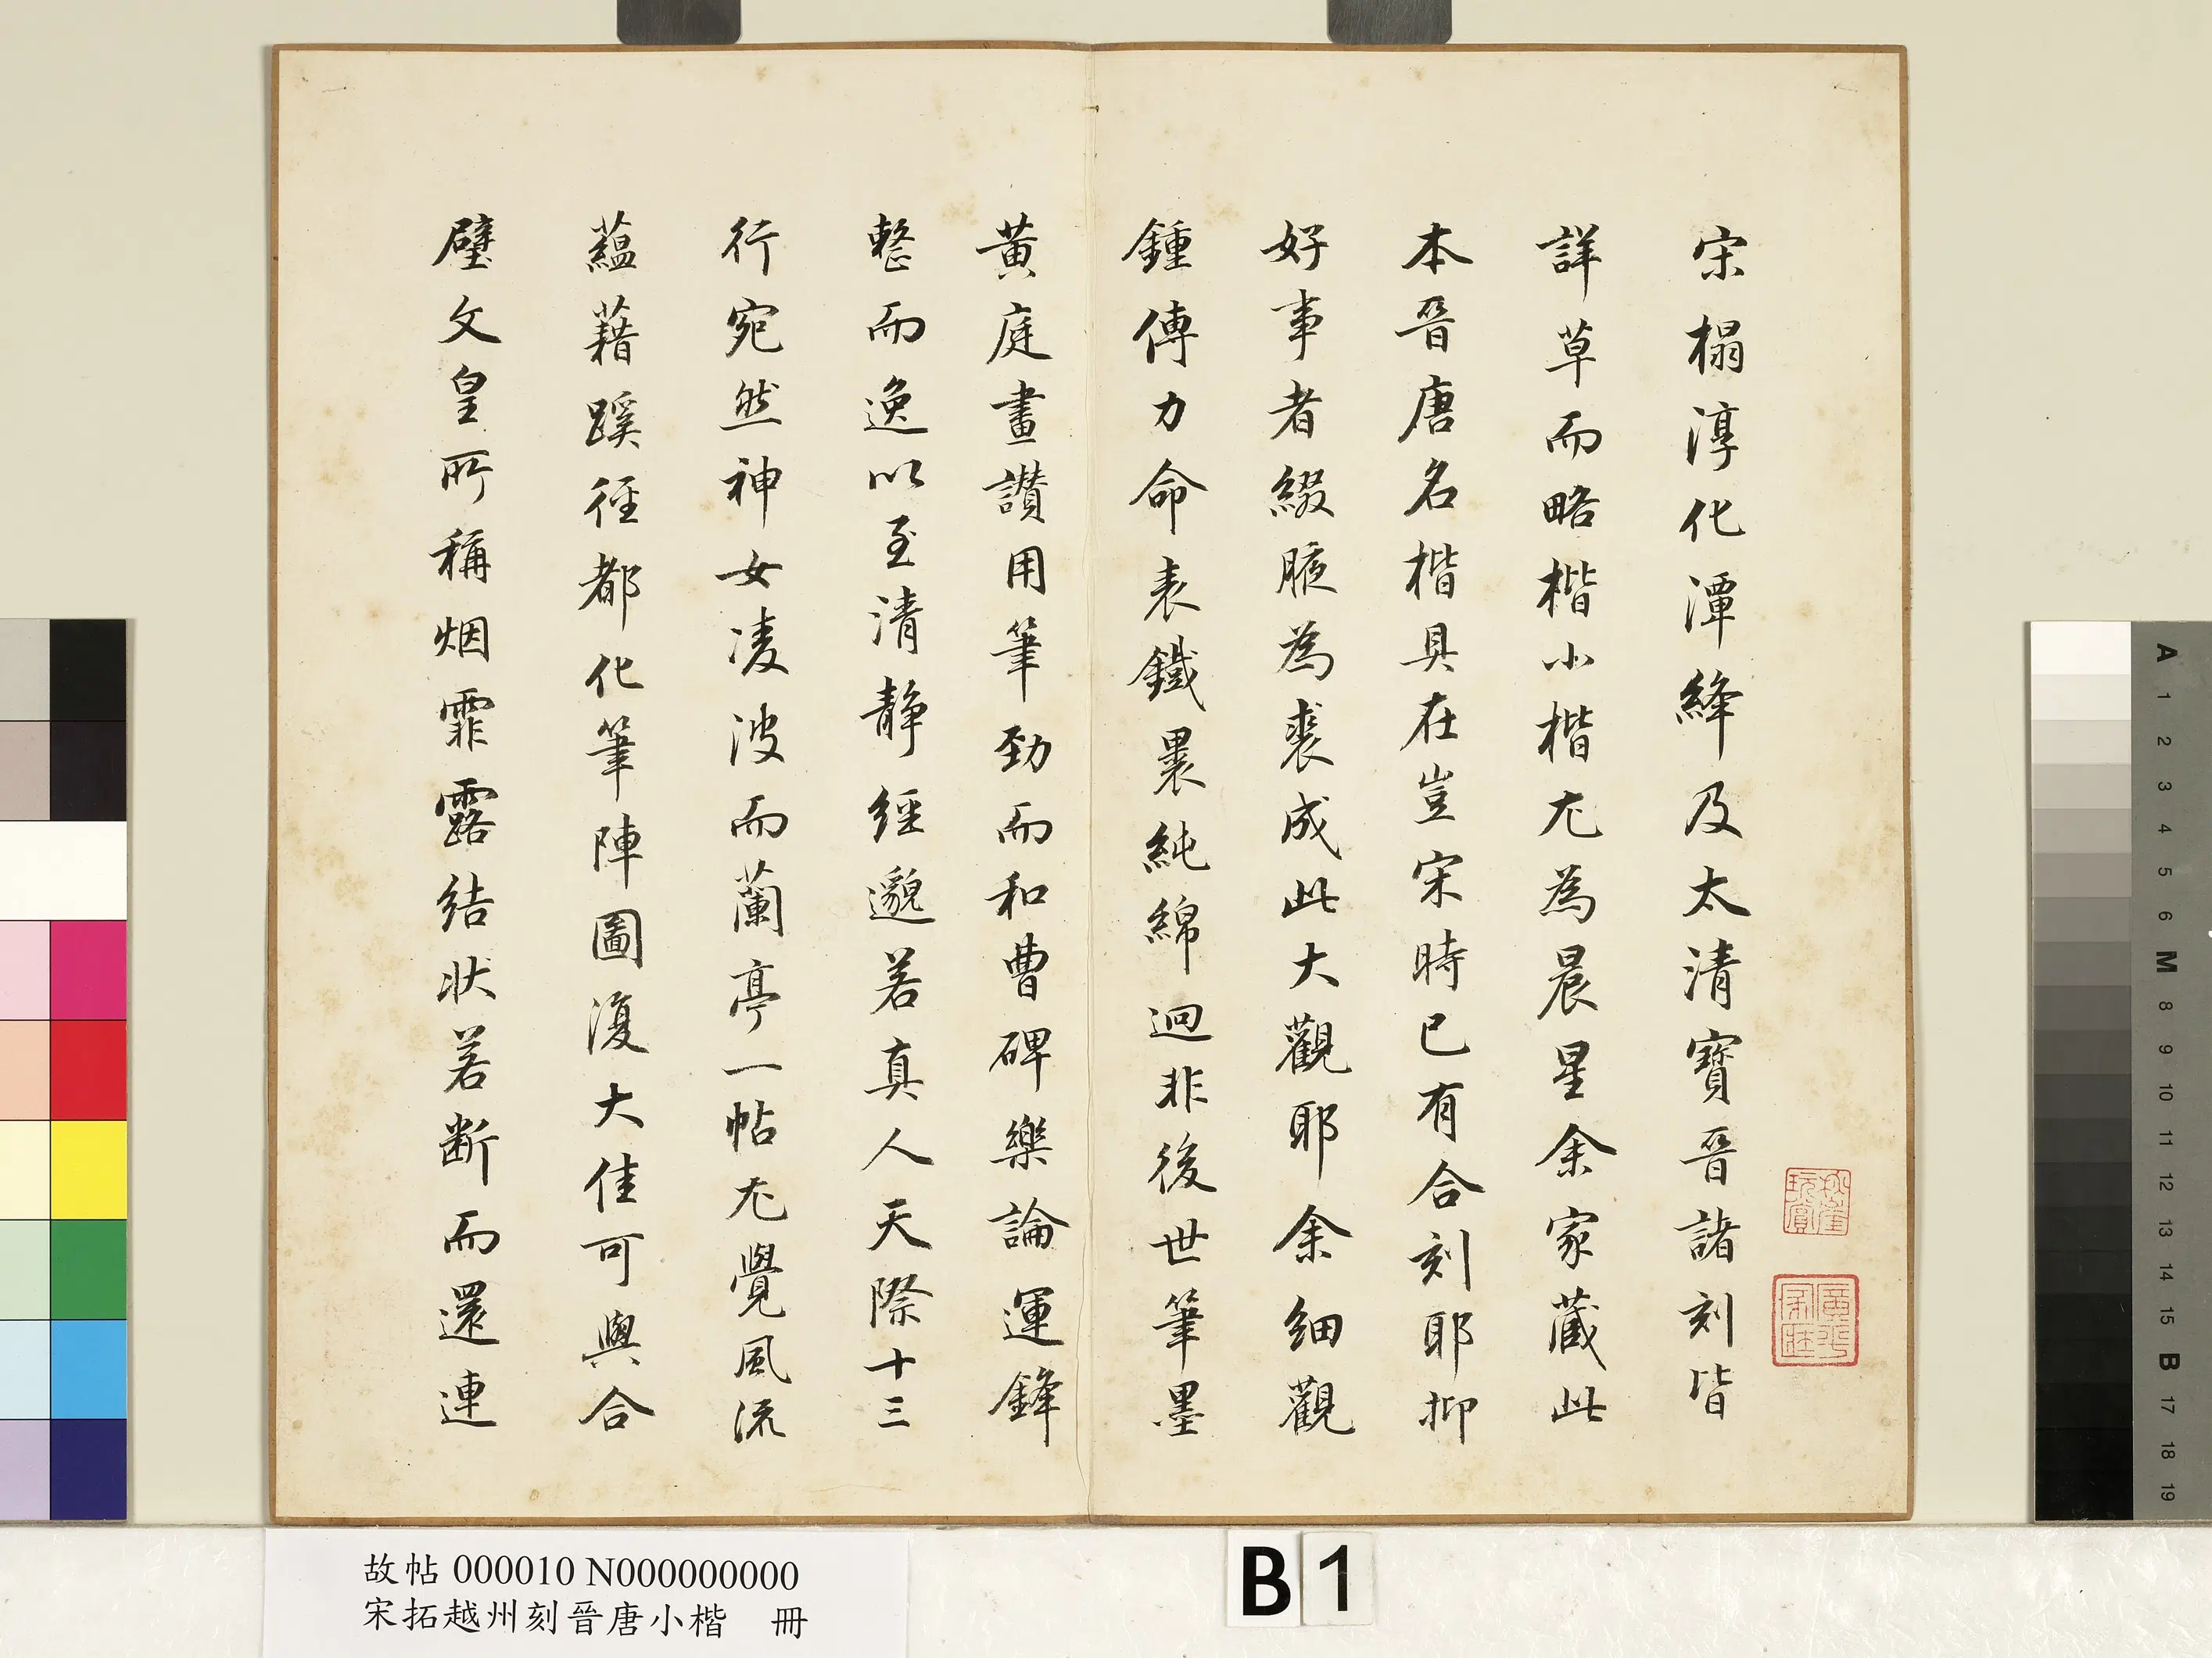 宋榻淳化潭絳及太清寶晉諸刻皆
詳草而略楷小楷尤為晨星余家藏此
本晉唐名楷具在豈宋時已有合刻耶抑
好事者綴腋為裘成此大觀耶余細觀
鍾傅力命表鐵裹純綿迥非後世筆墨
黃庭畫讚用筆勁而和曹碑樂論運鋒
整而逸以至清靜經邈若真人天際十三
行宛然神女凌波而蘭亭一帖尤覺風流
蘊藉蹊徑都化筆陣圖復大佳可與合
璧文皇所稱烟霏露結狀若断而還連
故帖 000010 N000000000
宋拓越州刻晉唐小楷 冊
B 1
A 1 2 3 4 5 6 M 8 9 10 11 12 13 14 15 B 17 18 19